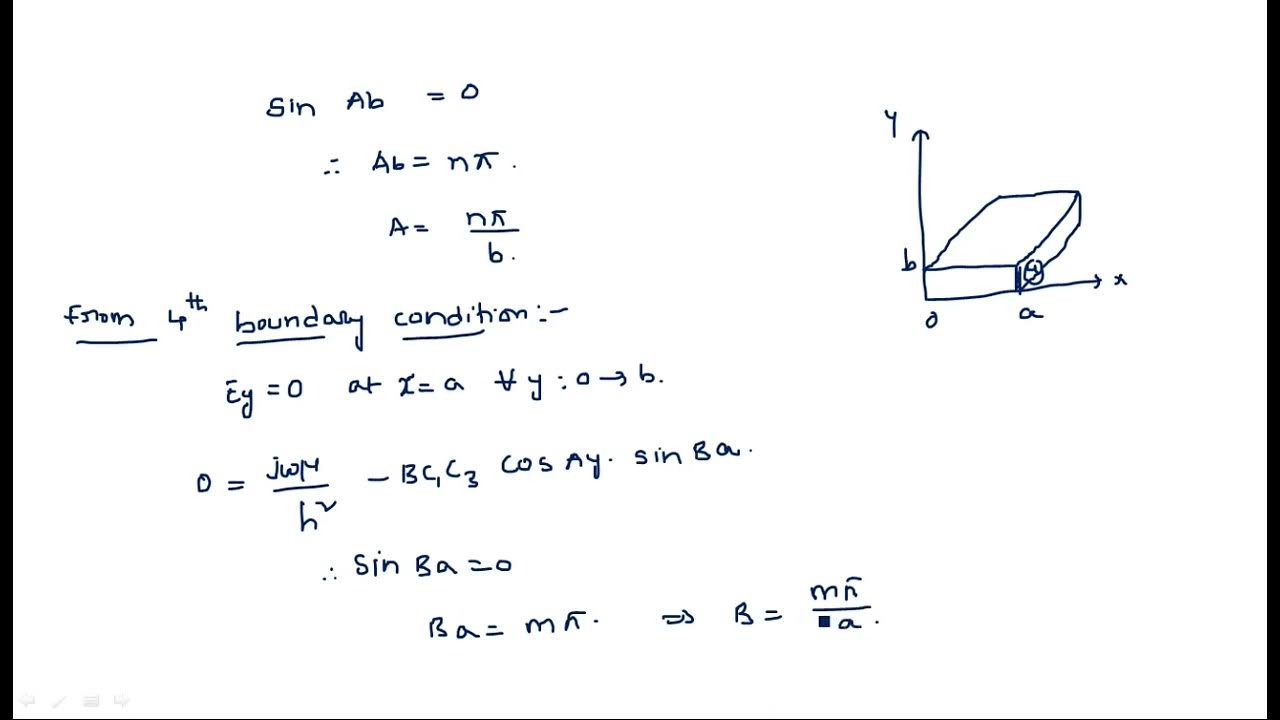 Sin Ab = 0
∴ Ab = nπ.
A = nπ/b.
From 4th boundary condition :-
Ey = 0 at x = a ∀ y : 0 → b.
0 = jωμ/h² - BC₁C₃ cos Ay. sin Ba.
∴ Sin Ba = 0
Ba = mπ. ⇒ B = mπ/a.
y
b
4
x
0
a